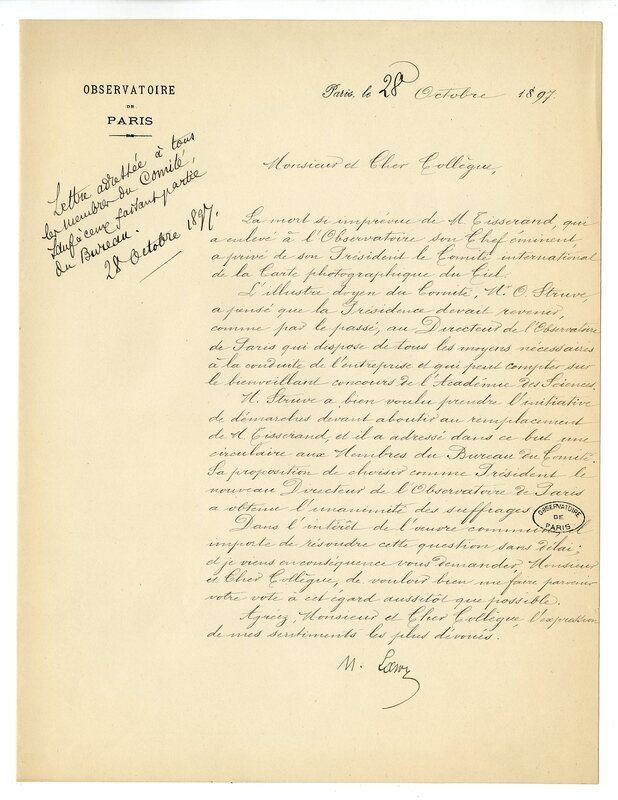 OBSERVATOIRE
DE
PARIS
Paris, le 28 Octobre 1897.
Lettre adressée à tous
les membres du Comité,
sauf à ceux faisant partie
du Bureau.
28 Octobre 1897.
Monsieur et Cher Collègue,
La mort si imprévue de M. Tisserand, qui
a enlevé à l'Observatoire son Chef éminent,
a privé de son Président le Comité international
de la Carte photographique du Ciel.
L'illustre doyen du Comité, Mr. O. Struve
a pensé que la Présidence devait revenir,
comme par le passé, au Directeur de l'Observatoire
de Paris qui dispose de tous les moyens nécessaires
à la conduite de l'entreprise et qui peut compter sur
le bienveillant concours de l'Académie des Sciences.
M. Struve a bien voulu prendre l'initiative
de démarches devant aboutir au remplacement
de M. Tisserand, et il a adressé dans ce but une
circulaire aux Membres du Bureau du Comité.
Sa proposition de choisir comme Président le
nouveau Directeur de l'Observatoire de Paris
a obtenu l'unanimité des suffrages
OBSERVATOIRE
DE
PARIS
Dans l'intérêt de l'œuvre commune, il
importe de résoudre cette question sans délai;
et je viens en conséquence vous demander, Monsieur
et Cher Collègue, de vouloir bien me faire parvenir
votre vote à cet égard aussitôt que possible.
Agréez, Monsieur et Cher Collègue, l'expression
de mes sentiments les plus dévoués.
M. Lœwy